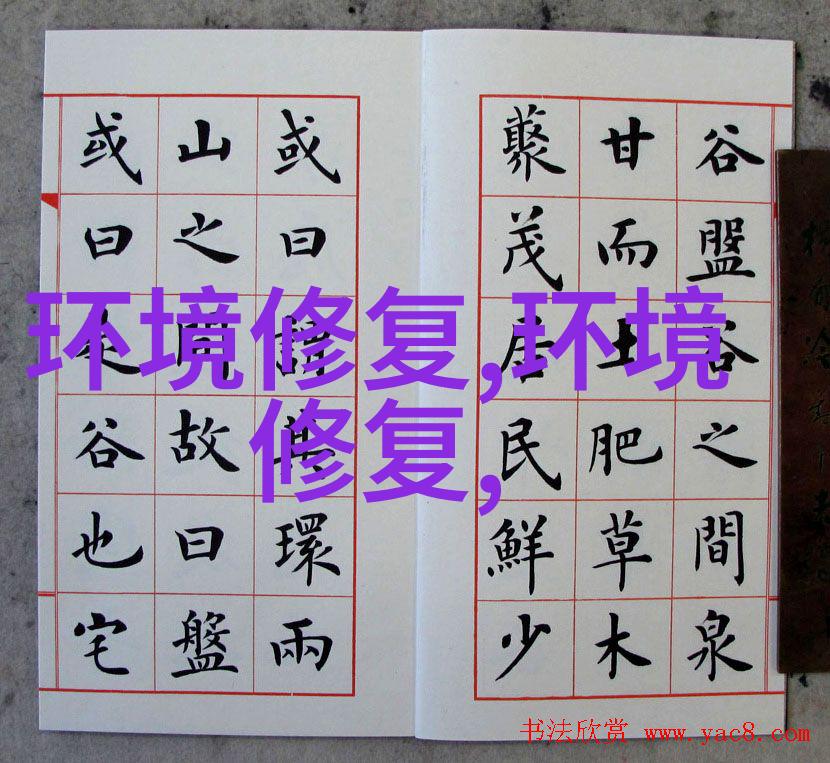 谷盤谷之間泉
甘而土肥草木
藂茂居民鮮少
或曰謂其環兩
山之間故曰盤
或曰是谷也宅
环境修复,环境
修复,
书法欣赏 www.yac8.com